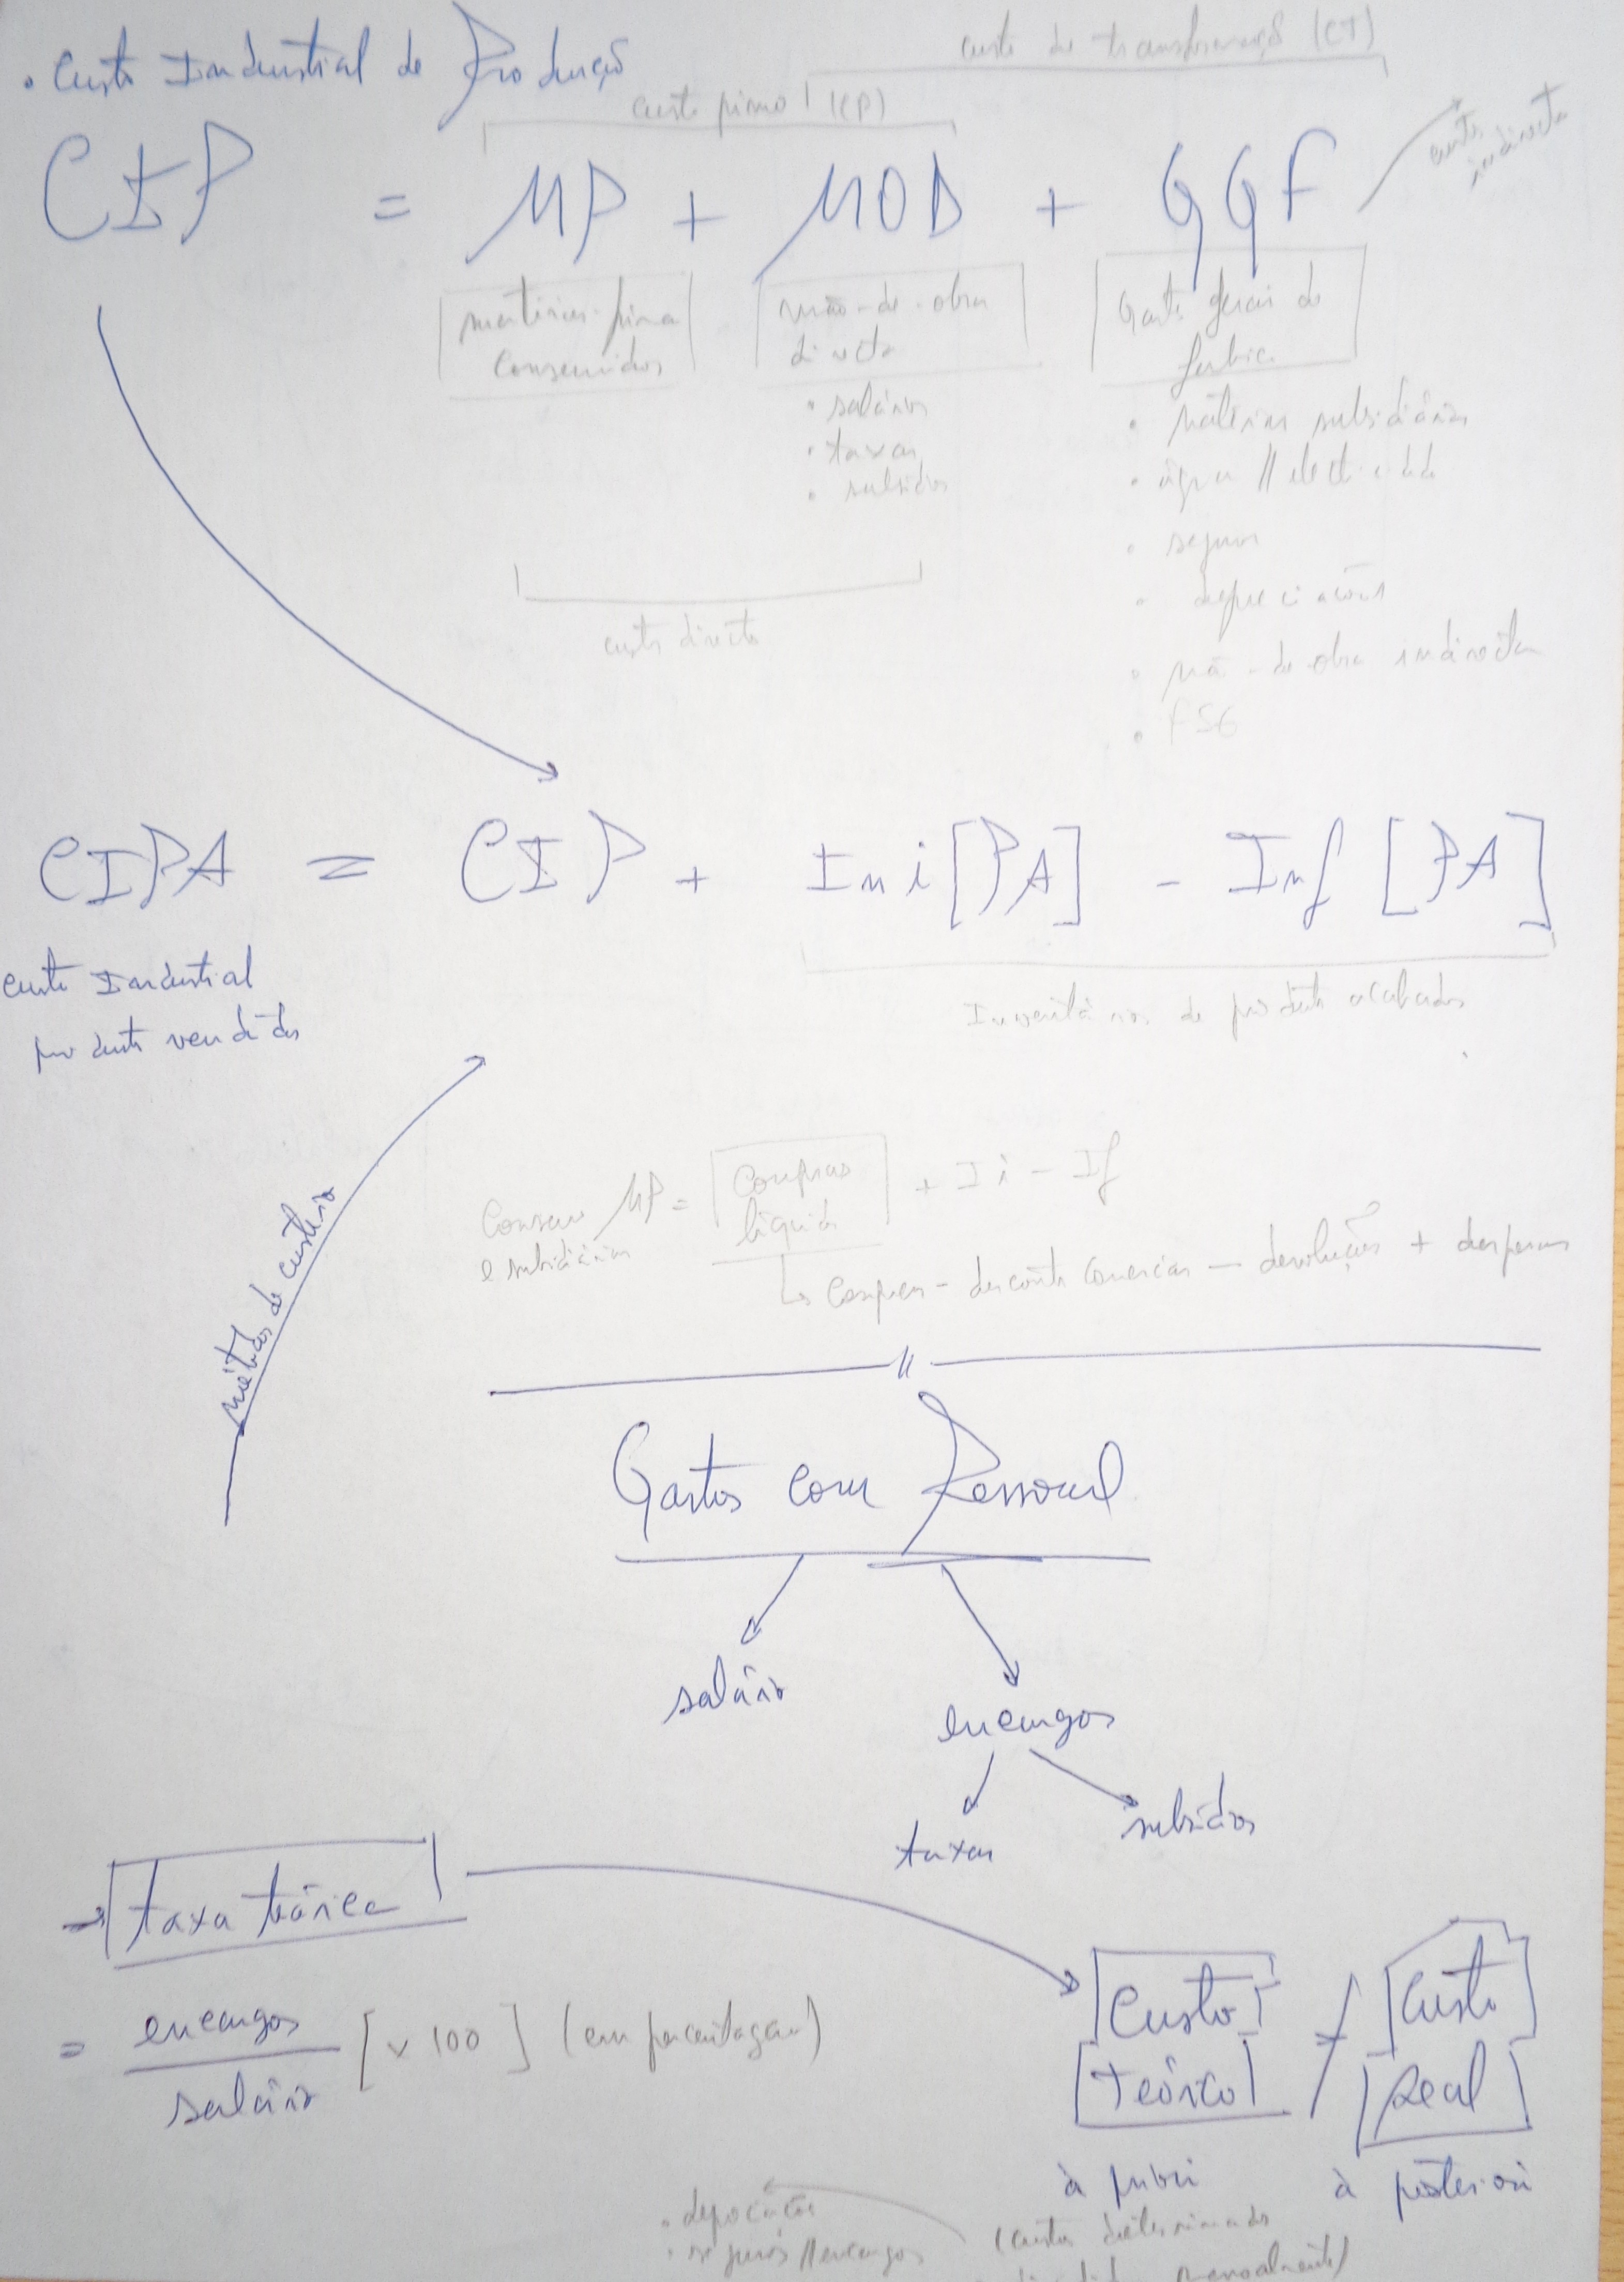 • Custo Industrial de Produção
custo de transformação (CT)
custo primo (CP)
custo indirecto
CIP = MP + MOD + GGF
matérias-primas consumidas
mão-de-obra directa
Gastos gerais de fabrico
• salários
• taxas
• subsídios
• matérias subsidiárias
• água // electricidade
• seguros
• depreciações
• mão-de-obra indirecta
• FSE
custo directo
CIPA = CIP + Ini [PA] - Inf [PA]
custo Industrial
produtos vendidos
Inventários de produtos acabados
métodos de custeio
Consumo MP = Compras líquidas + Ii - If
e subsidiárias
↳ compras - descontos comerciais - devoluções + despesas
Gastos com Pessoal
salário
encargos
taxas
subsídios
→ taxa teórica
= encargos / salário [× 100] (em percentagem)
Custo Teórico ≠ Custo Real
à priori
à posteriori
• seguros // encargos
(custos determinados
mensalmente)